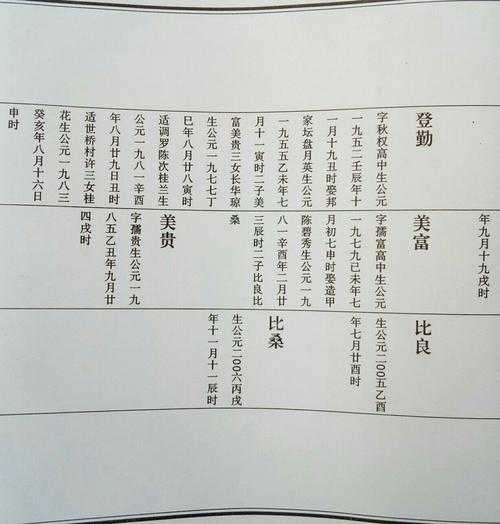 登勤
字秋权高中生公元
一九五二壬辰年十
一月十九丑时娶邦
家坛盘月英生公元
一九五五乙未年七
月十一寅时二子美
富美贵三女长华琼
生公元一九七七丁
巳年八月廿八寅时
适调罗陈次桂兰生
公元一九八一辛酉
年八月廿九日丑时
适世桥村许三女桂
花生公元一九八三
癸亥年八月十六日
申时
年九月十九戌时
美富
字孺富高中生公元
一九七九己未年七
月初七申时娶造甲
陈碧秀生公元一九
八一辛酉年二月廿
三辰时二子比良比
桑
美贵
字孺贵生公元一九
八五乙丑年九月廿
四戌时
比良
生公元二00五乙酉
年七月廿酉时
比桑
生公元二00六丙戌
年十一月十一辰时